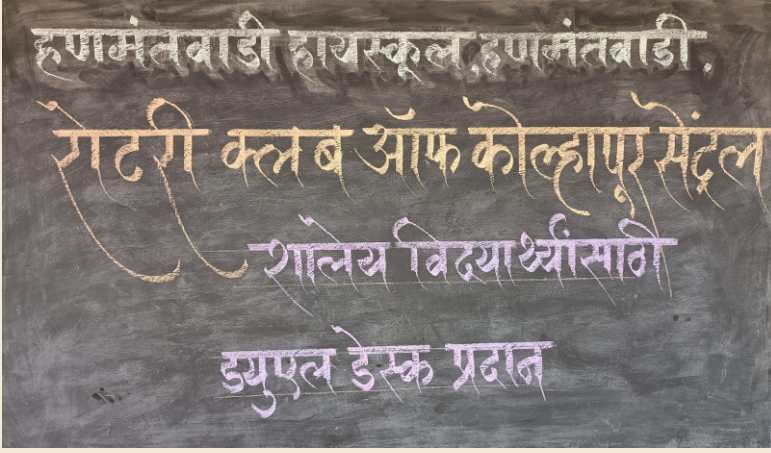 हणमंतवाडी हायस्कूल, हणमंतवाडी.
रोटरी क्लब ऑफ कोल्हापूर सेंट्रल
शालेय विद्यार्थ्यांसाठी
ड्युएल डेस्क प्रदान